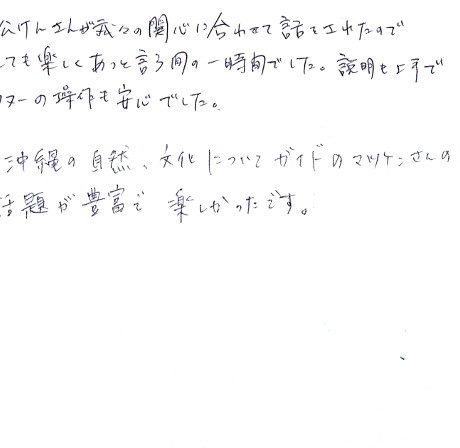 松けんさんが我々の関心に合わせて話をされたので
ても楽しくあっと言う間の一時間でした。説明も上手で
ターの操作も安心でした。
沖縄の自然、文化についてガイドのマツケンさんの
話題が豊富で楽しかったです。